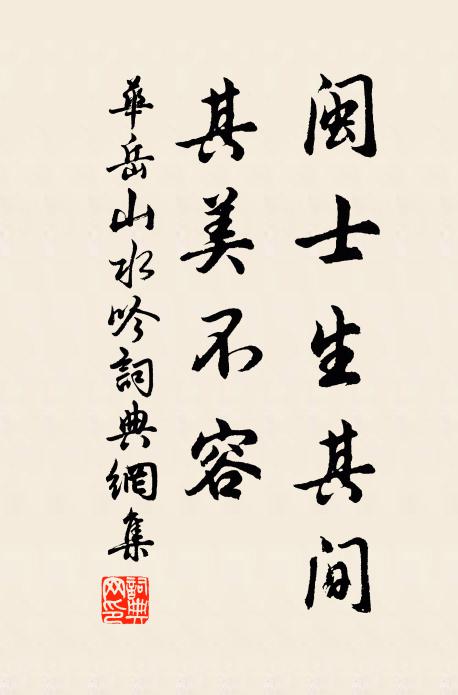 闽士生其间
其美不容
華岳山水吟詞典網集
詞典網印